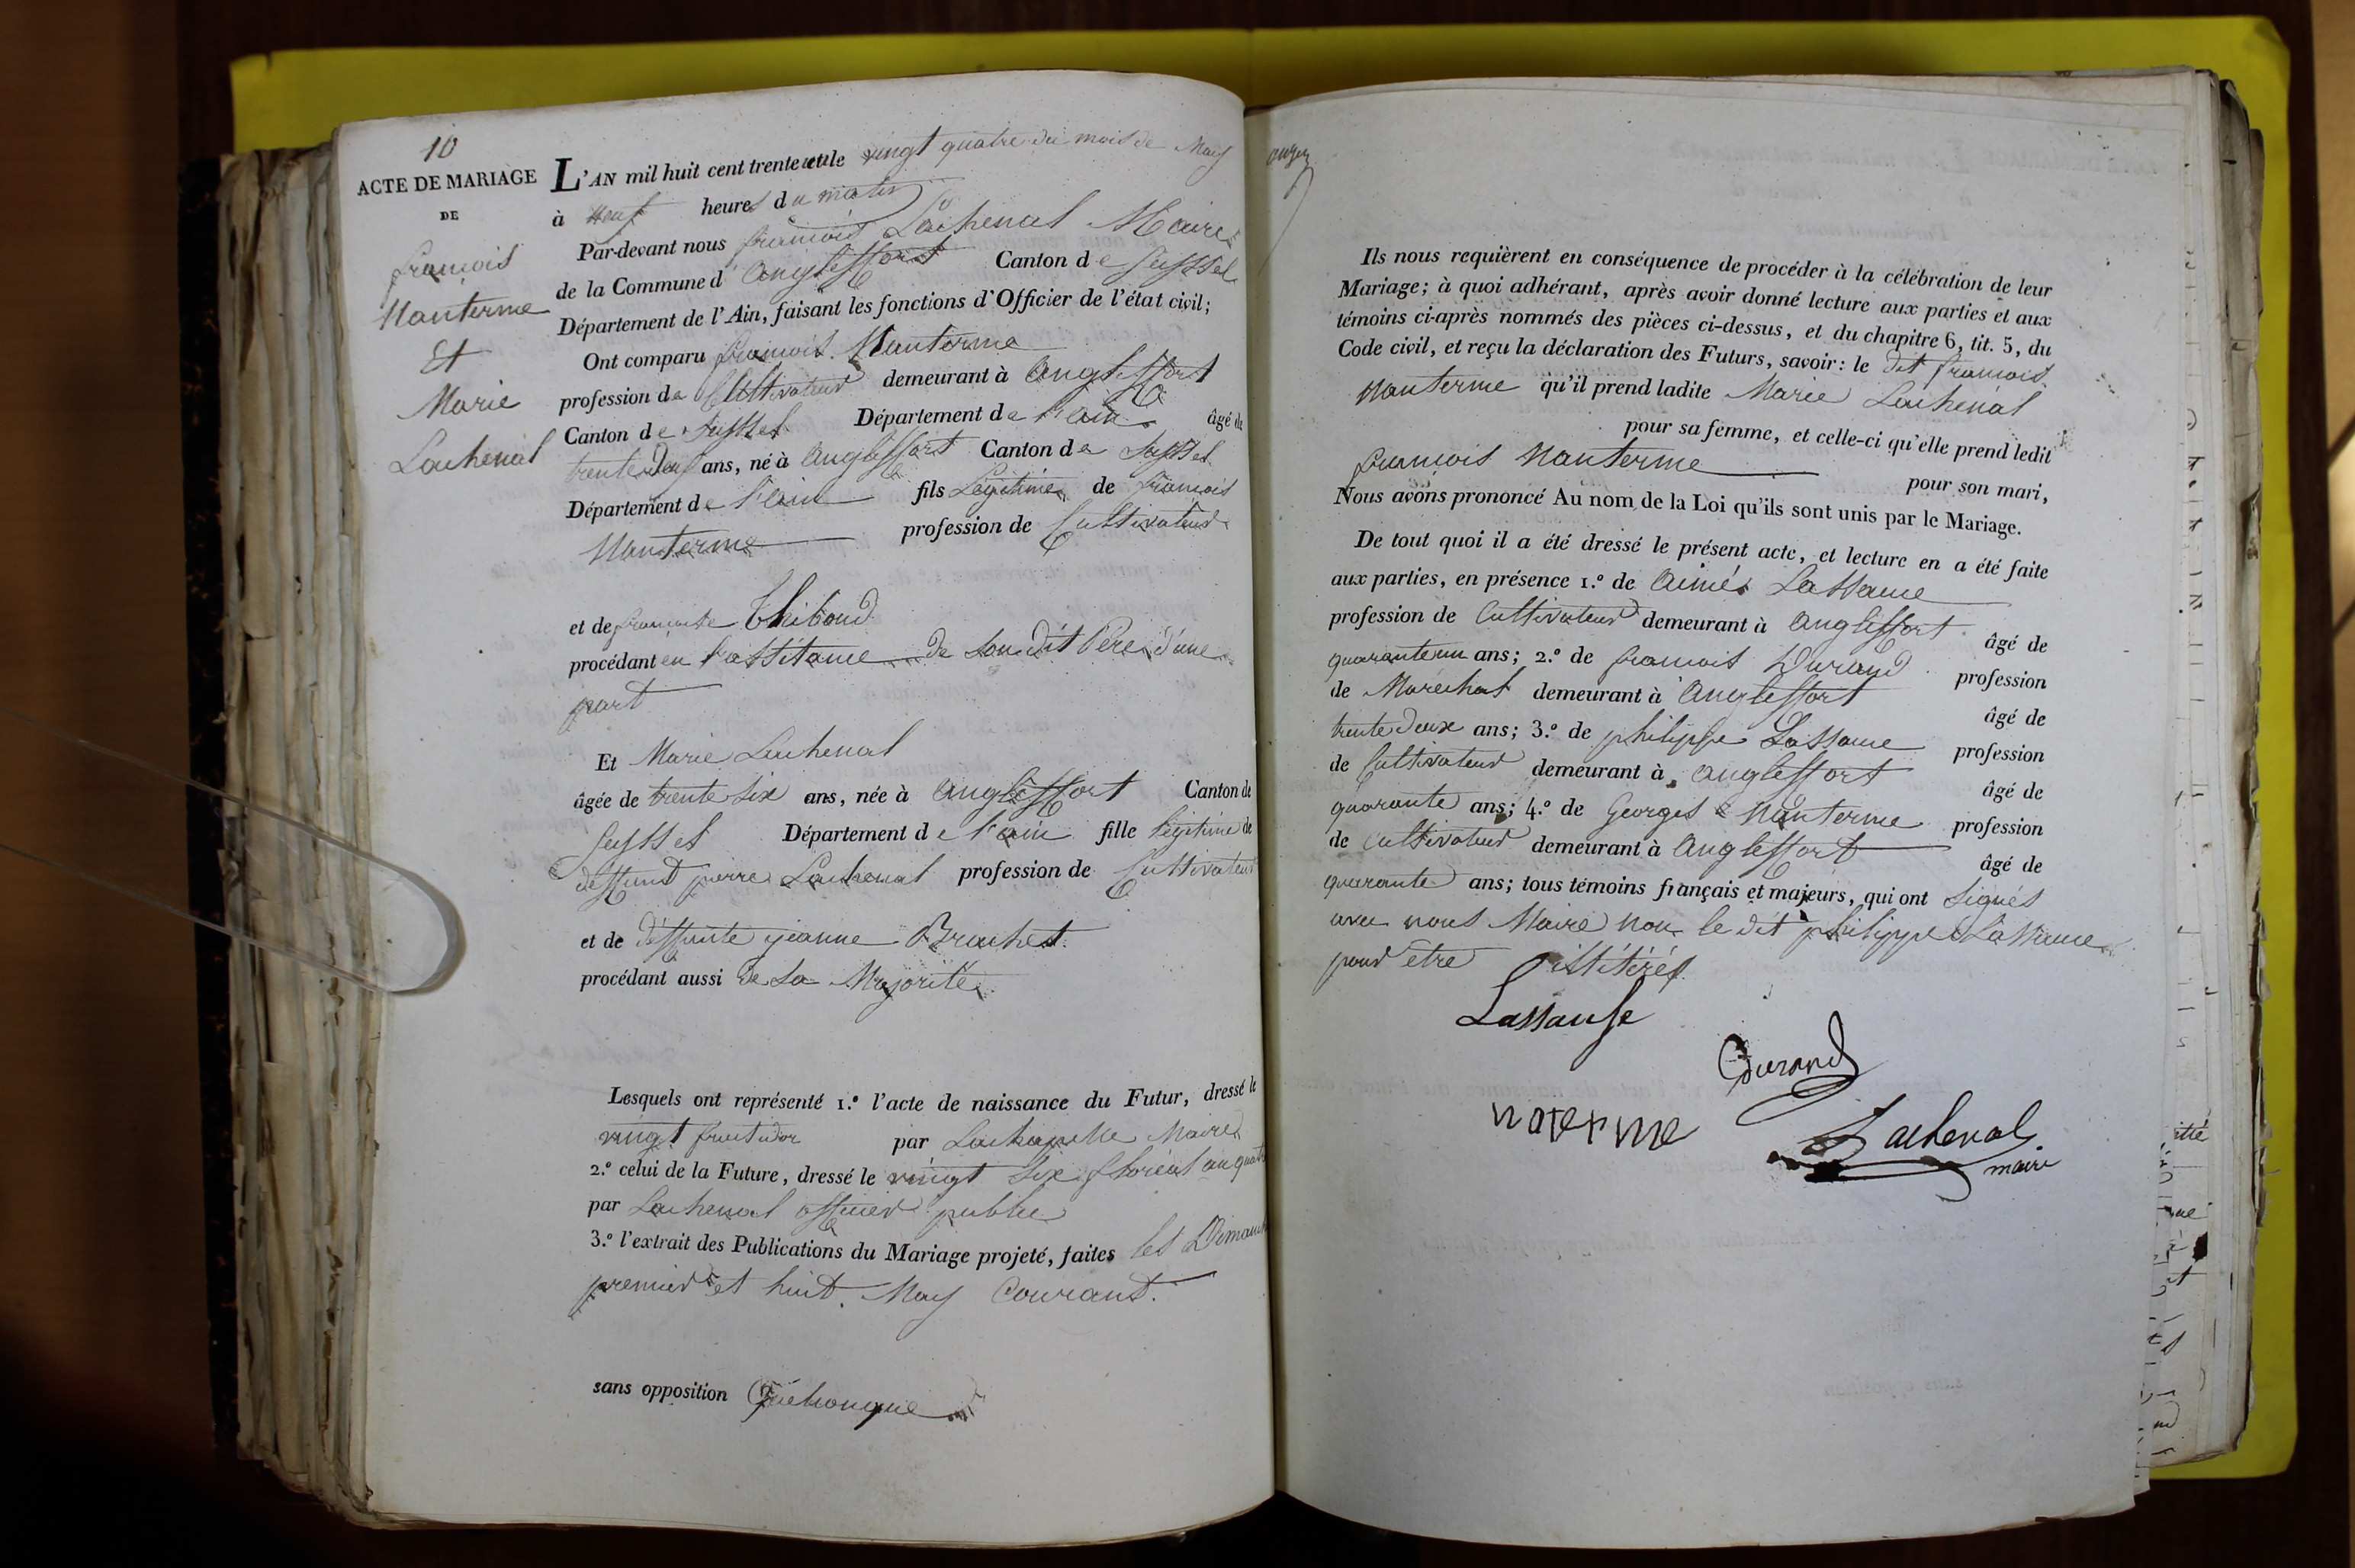 10
ACTE DE MARIAGE
DE
françois
Nanterme
Et
Marie
Lachenal
L'AN mil huit cent trente et un le vingt quatre du mois de May
à neuf heures du matin
Par-devant nous françois Lachenal Maire
de la Commune d'Anglessfort Canton de Seyssel
Département de l'Ain, faisant les fonctions d'Officier de l'état civil;
Ont comparu françois Nanterme
profession de Cultivateur demeurant à Anglessfort
Canton de Seyssel Département de l'ain âgé de
ans, né à Anglessfort Canton de Seyssel
Département de l'ain fils Légitime de françois
Nanterme profession de Cultivateur
et de françoise Thiboud
procédant en l'assitance de Son dit Père d'une
part
Et Marie Lachenal
âgée de trente Six ans, née à Anglessfort Canton de
Seyssel Département de l'ain fille légitime de
deffunt pierre Lachenal profession de Cultivateur
et de deffunte jeanne Brachet
procédant aussi de Sa Majorité
Lesquels ont représenté 1.º l'acte de naissance du Futur, dressé le
vingt fructidor par Lachapelle Maire
2.º celui de la Future, dressé le vingt Six floréal an quatre
par Lachenal officier public
3.º l'extrait des Publications du Mariage projeté, faites les Dimanche
premier et huit May Courant.
sans opposition Quelconque
Ils nous requièrent en conséquence de procéder à la célébration de leur
Mariage; à quoi adhérant, après avoir donné lecture aux parties et aux
témoins ci-après nommés des pièces ci-dessus, et du chapitre 6, tit. 5, du
Code civil, et reçu la déclaration des Futurs, savoir: le dit françois
Nanterme qu'il prend ladite Marie Lachenal
pour sa femme, et celle-ci qu'elle prend ledit
françois Nanterme pour son mari,
Nous avons prononcé Au nom de la Loi qu'ils sont unis par le Mariage.
De tout quoi il a été dressé le présent acte, et lecture en a été faite
aux parties, en présence 1.º de Aimé Lassauce
profession de Cultivateur demeurant à Anglessfort âgé de
quarante un ans; 2.º de françois Durand profession
de Marechal demeurant à Anglessfort âgé de
trente deux ans; 3.º de philippe Lassauce profession
de Cultivateur demeurant à Anglessfort âgé de
quarante ans; 4.º de Georges Nanterme profession
de Cultivateur demeurant à Anglessfort âgé de
quarante ans; tous témoins français et majeurs, qui ont Signés
avec nous Maire non le dit philippe Lassauce
pour être illitérés
Lassause
Durand
noterme
Lachenal
maire